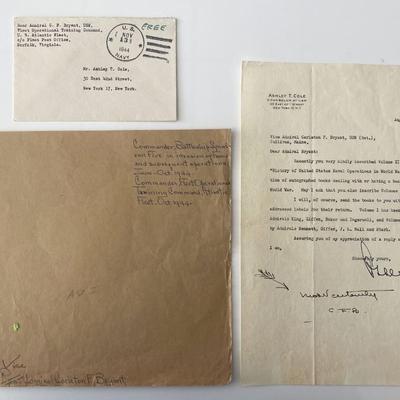 Rear Admiral C. F. Bryant, USN,
Fleet Operational Training Command,
U. S. Atlantic Fleet,
c/o Fleet Post Office,
Norfolk, Virginia.
U. S.
NOV
1944
NAVY
FREE
Mr. Ashley T. Cole,
30 East 42nd Street,
New York 17, New York.
Commander Battleship
Five in invasion of
and subsequent operations,
June - Oct 1944.
Commander Fleet Operational
Training Command, Atlantic
Fleet, Oct 1944.
Vice
Admiral Carleton F. Bryant
ASHLEY T. COLE
COUNSELOR AT LAW
NEW YORK
Vice Admiral Carleton F. Bryant, USN (Ret.),
Sullivan, Maine.
Dear Admiral Bryant:
Recently you very kindly inscribed Volume II
"History of United States Naval Operations in World Wa
tion of autographed books dealing with or having a bea
World War. May I ask that you also inscribe Volume
I will, of course, send the books to you with
addressed labels for their return. Volume I has been
Admirals King, Giffen, Baker and Ingersoll, and Volume
by Admirals Bennett, Giffen, J. L. Hall and Stark.
Assuring you of my appreciation of a reply a
I am,
Sincerely yours,
Most certainly
C F B